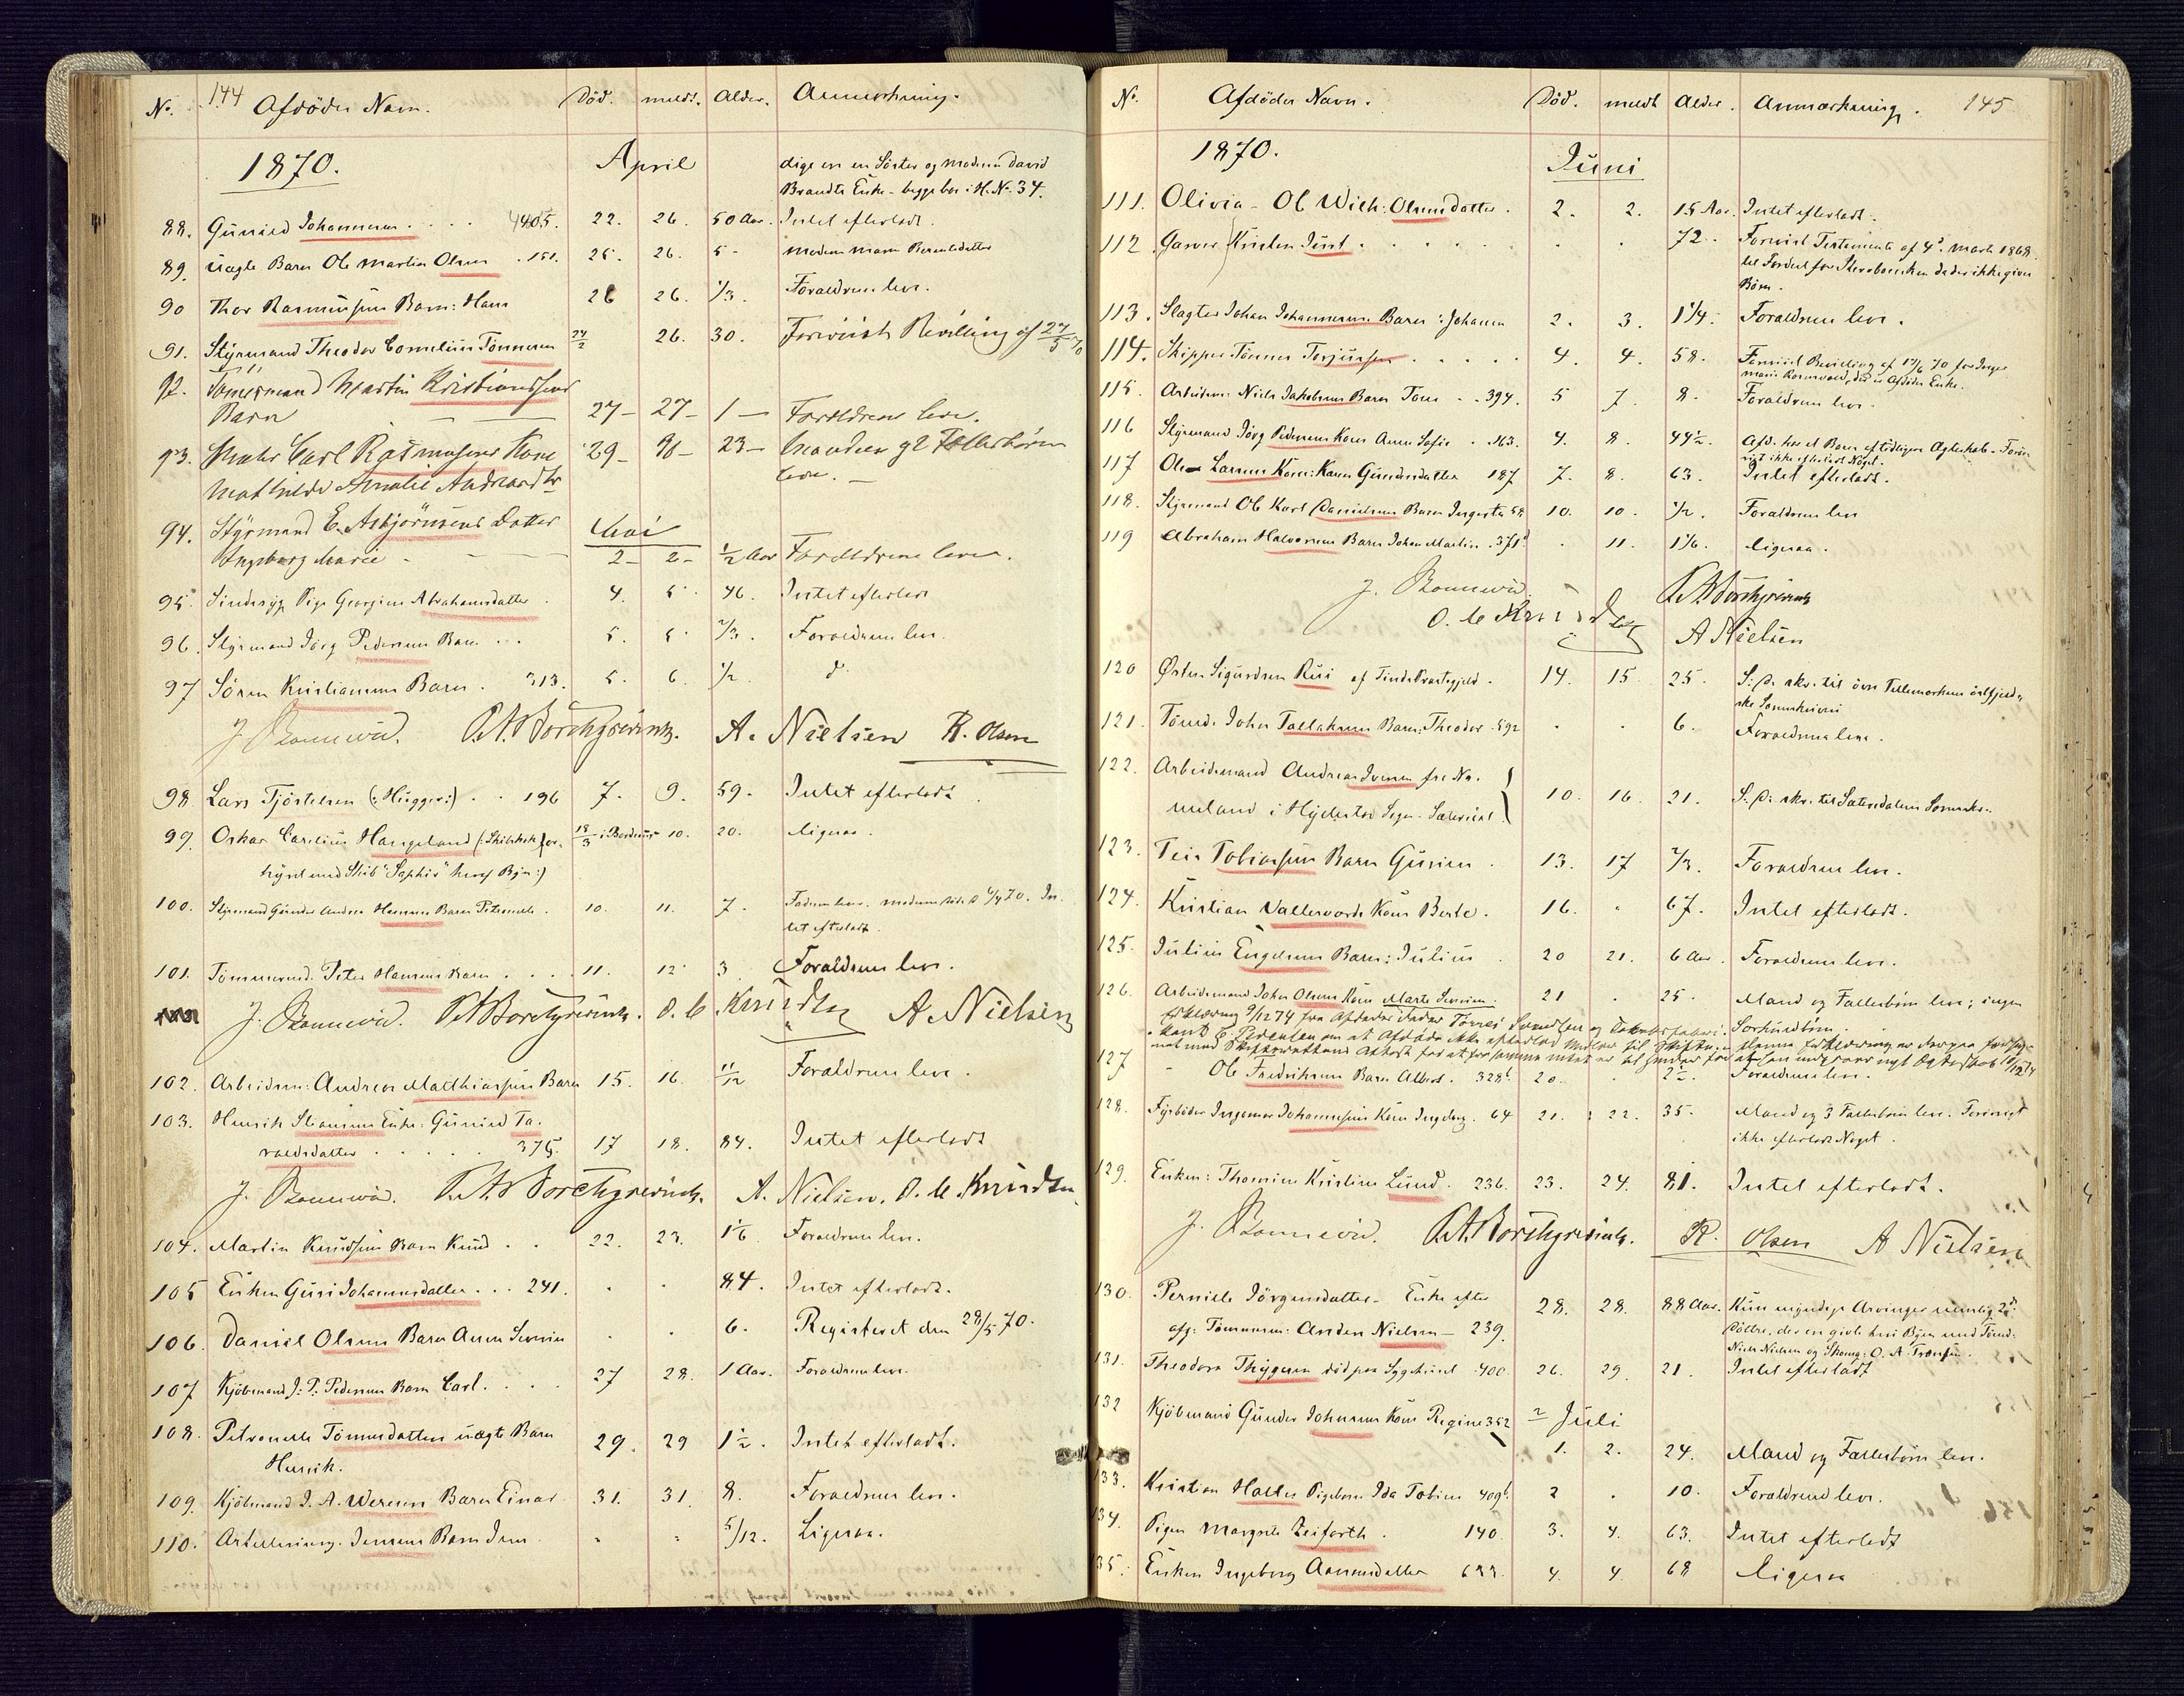 No. 144 Afdødes Navn. Död. meldt. Alder. Anmærkning.
1870. April
dige en en Söster og moderen David
Brandts Enke - begge bor i H. No. 34.
88. Gunild Johannesen 440 5. 22. 26. 50 Aar. Intet efterladt.
89. uægte Barn Ole Martin Olsen 151. 25. 26. 5 - moderen Maren Berentsdatter
90 Thor Rasmussens Barn: Hans 26 26. 1/3. Forældrene lever.
91. Styrmand Theodor Cornelius Tönnesen 24/2 26. 30. Forevist Bevilling af 24/5 70
92. Tömmermand Martin Kristiansens
Barn 27 - 27 - 1 - Forældrene lever.
93. Maler Carl Rasmusens Kone 29 - 30 - 23 - Manden og 2 Fællesbörn
Mathilde Amalie Andreasdtr lever. -
94. Styrmand E. Asbjörnsens Datter Mai
Ingeborg Marie - 2 - 2 - 1/2 Aar Forældrene lever.
95. Sindssyg Pige Georgine Abrahamsdatter. 4. 5. 46. Intet efterladt
96. Styrmand Jörg Pedersens Barn 5. 5. 2/3. Forældrene lever.
97 Sören Kristiansens Barn. 313. 5. 6. 1/2. do
J. Bonnevie. P. A. Borchgrevink. A. Nielsen R. Olsen
98 Lars Tjöstelsen (: Hugger :) 196 7. 9. 59. Intet efterladt
99. Oskar Carelius Haugeland (: Skibskok for- 18/3 i Bordeaux 10. 20. ligesaa.
hyret med Skib "Saphir" heraf Byen :)
100. Styrmand Gunder Andreas Hansens Barn Petronelle. 10. 11. 7. Faderen lever. moderen död 4/4 70. In-
tet efterladt.
101. Tömmermd. Peter Hansens Barn 11. 12 3 Forældrene lever.
J. Bonnevie. P. A. Borchgrevink. O. C. Knudsen A. Nielsen
102. Arbeidsm: Andreas Matthiassens Barn 15. 16. 11/12 Forældrene lever.
103. Henrik Hansens Enke: Gunild Ta-
raldsdatter 375. 17 18. 84. Intet efterladt
J. Bonnevie. P. A. Borchgrevink. A. Nielsen. O. C. Knudsen
104. Martin Knudsens Barn Knud 22. 23. 1 1/6 Forældrene lever.
105 Enken Guri Johannesdatter 241. . . 84. Intet efterladt.
106. Daniel Olsens Barn Anne Severine . . 6. Registeret den 28/5 70.
107 Kjöbmand J. P. Pedersens Barn Carl. 27 28. 1 Aar. Forældrene lever.
108. Petronelle Tönnesdatters uægte Barn 29. 29 1 1/2. Intet efterladt.
Henrik.
109. Kjöbmand J. A. Wersens Barn Einar 31. 31. 8. Forældrene lever.
110. Artellerimg. Jensens Barn Jens " " 5/12. Ligesaa.
No. Afdødes Navn. Död. meldt Alder. Anmærkning. 145
1870. Juni
111. Olivia - Ol Wilh: Olsens datter. 2. 2. 15 Aar. Intet efterladt.
112. Garver Kristen Juul . . 72. Forevist Testamente af 4de Marts 1868
til Fordel for Sterboenken da der ikke gives
Börn.
113. Slagter Johan Johannesens Barn: Johanna 2. 3. 1 1/4. Forældrene lever.
114. Skipper Tönnes Torjussen 4. 4. 58. Forevist Bevilling af 17/6 70 for Inger
Marie Rosenvold, der er Afdödes Enke.
115. Arbeidsm: Niels Jakobsens Barn Tone 394. 5 7. 8. Forældrene lever.
116 Styrmand Jörg Pedersens Kone Anne Sofie 163. 4. 8. 44 1/2. Afd. har et Barn af tidligere Ægteskab - Forö-
vrigt ikke efterladt Noget.
117 Ole Larsens Kone: Karen Gundersdatter 187 7. 8. 63. Intet efterladt.
118. Styrmand Ole Karl Danielsens Barn Ingerta 58 10. 10. 1/2. Forældrene lever
119 Abraham Halvorsens Barn Johan Martin. 371 . 11. 1 1/6. ligesaa.
J. Bonnevie P. A. Borchgrevink
O. C. Knudsen A Nielsen
120 Østen Sigurdsen Rui af Tinds Præstegjeld. 14. 15. 25. S. D. skr. til övre Tellemarkens östfjeld-
ske Sorenskriveri
121. Tömd. John Tallaksens Barn: Theodor 592 . . 6. Forældrene lever.
122. Arbeidsmand Andreas Iversen fra No-
meland i Hyllestad Sogn - Sætersdal. 10. 16. 21. S. D. skr. til Sætersdalens Sorenskr.
123. Teis Tobiassens Barn Gusine 13. 17 2/3. Forældrene lever.
124. Kristian Vallevards Kone Berte. 16. " 67. Intet efterladt.
125. Julius Engelsens Barn: Julius 20 21. 6 Aar. Forældrene lever.
126. Arbeidsmand John Olsens Kone Marte Severine. 21 " 25. Mand og Fællesbörn lever; ingen
Særkuldbörn.
127 " Ole Fredriksens Barn Albert. 328 20. . 2 1/2. Forældrene lever.
128. Fyrböder Ingemar Johannesens Kone Ingeborg. 64 21. 22. 35. Mand og 3 Fællesbörn lever. Forövrigt
ikke efterladt Noget.
129. Enken: Thomine Kristine Lund. 236. 23. 24. 81. Intet efterladt.
J. Bonnevie. P. A. Borchgrevink. R. Olsen A Nielsen
130. Pernille Jörgensdatter - Enke efter 28. 28. 88 Aar. Kun myndige Arvinger nemlig 2de
afg: Tömmerm: Anders Nielsen - 239. Döttre, der er givte her i Byen med Tömd:
Niels Nielsen og Skomg: O. A. Transen.
131. Theodora Thygesen död paa Sygehuset 400 26. 29. 21. Intet efterladt
132 Kjöbmand Gunder Johnsens Kone Regine 352 Juli
1. 2. 24. Mand og Fællesbörn lever.
133. Kristian Halles Pigebarn Ida Tobine 409 2 . 10. Forældrene lever.
134. Pigen Margrete Zeiforth. 140 3. 4. 63. Intet efterladt
135. Enken Ingeborg Aanensdatter 633. 4. 4. 68 ligesaa